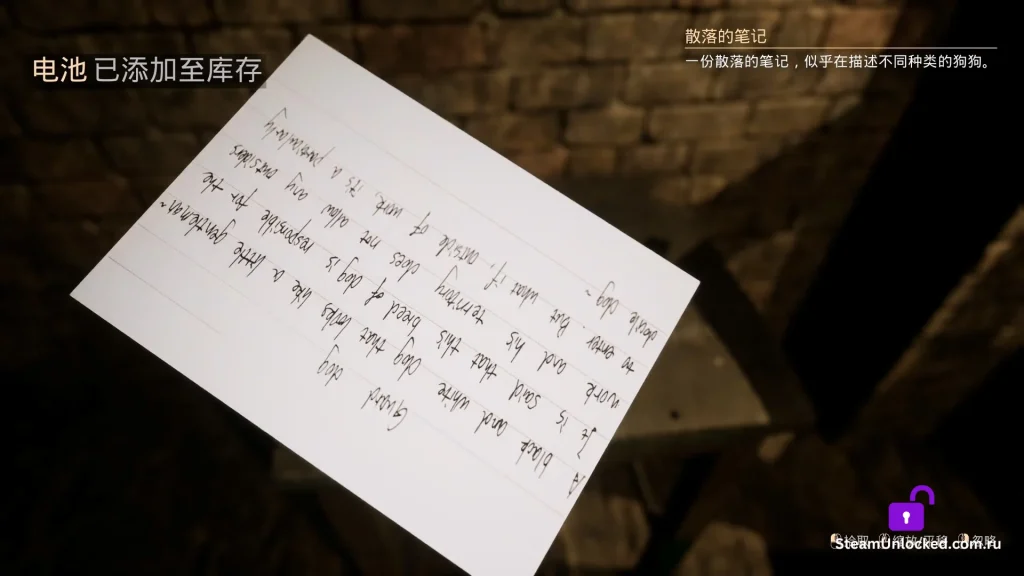 电池 已添加至库存
散落的笔记
一份散落的笔记，似乎在描述不同种类的狗狗。
Guard dog
A black and white dog that looks like a little gentleman~
It is said that this breed of dog is responsible for the
work and his territory does not allow any outsides
to enter. But what if, outside of work, it's a particularly
docile dog~
SteamUnlocked.com.ru